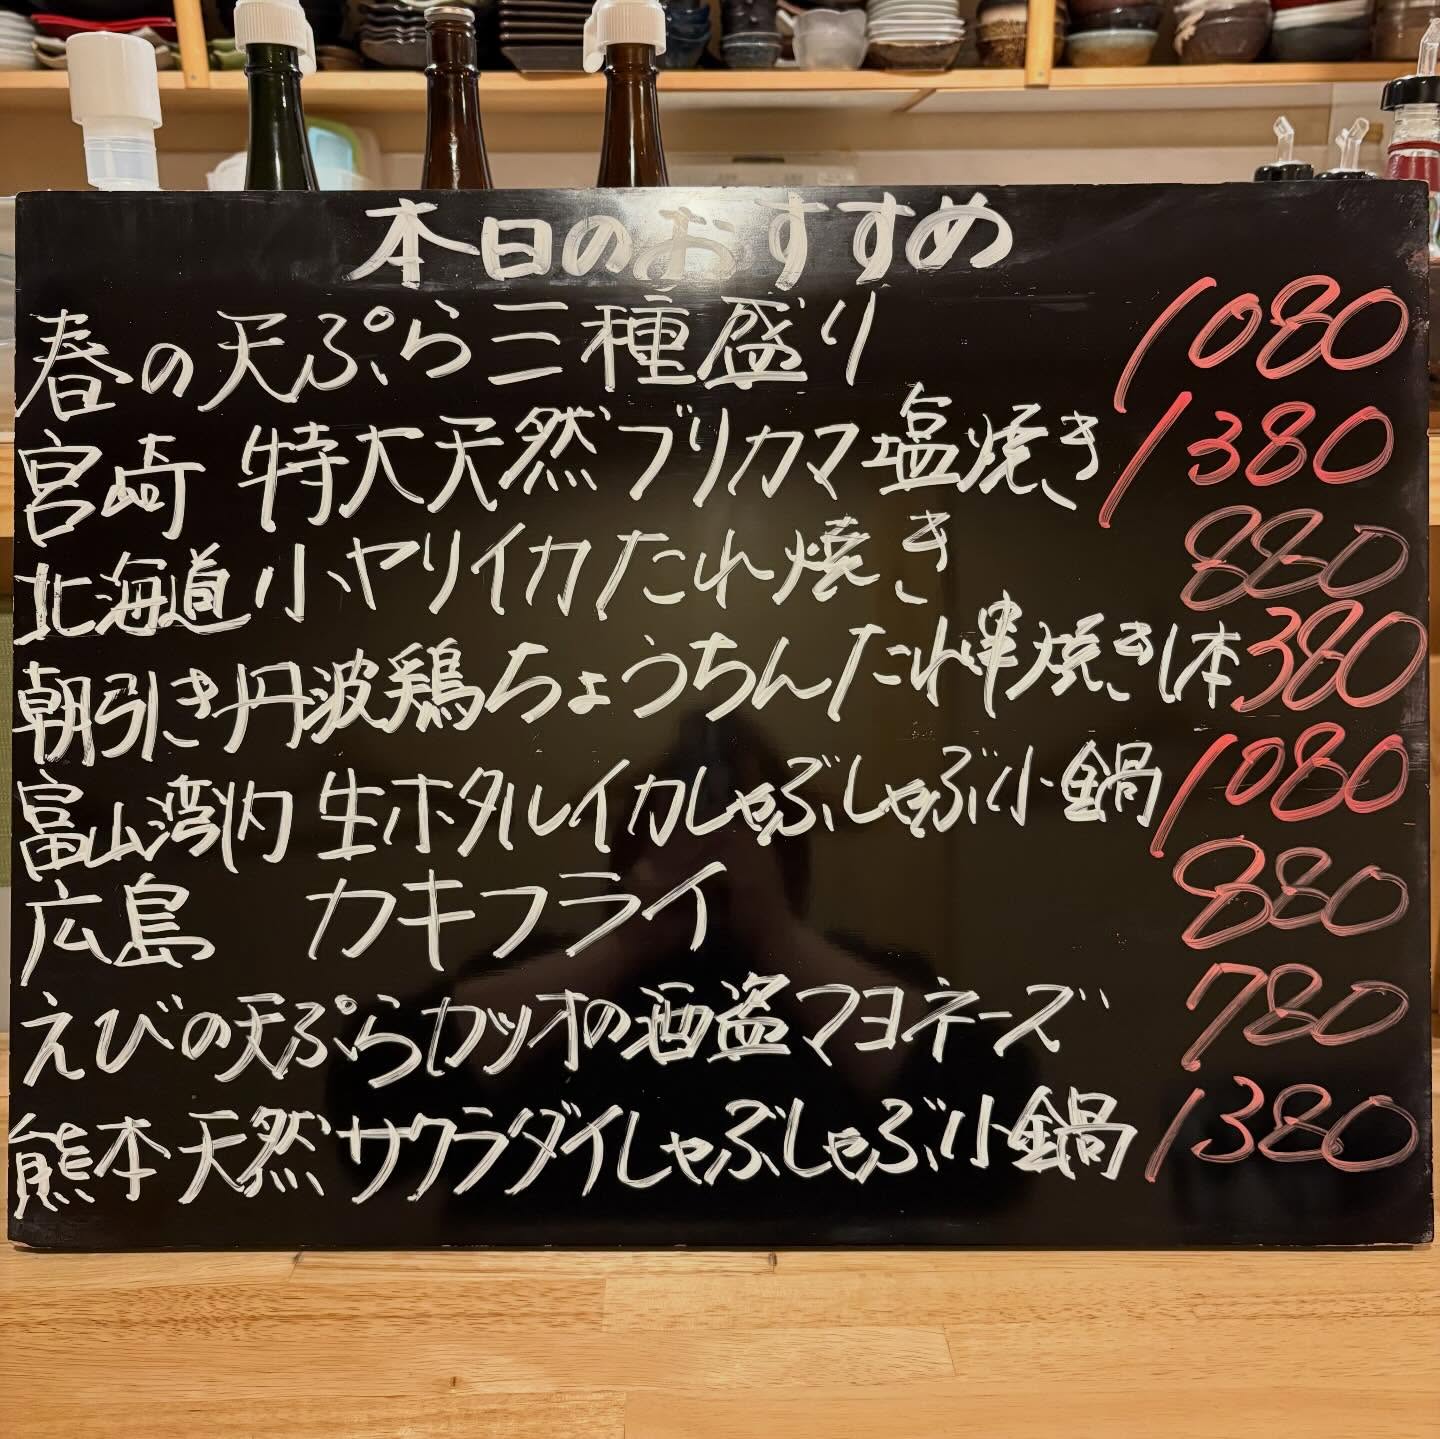 本日のおすすめ
春の天ぷら三種盛り 1080
宮崎 特大天然ブリカマ塩焼き 1380
北海道小ヤリイカたれ焼き 880
朝引き丹波鶏ちょうちんたれ串焼き1本 380
富山湾内 生ホタルイカしゃぶしゃぶ小鍋 1080
広島 カキフライ 880
えびの天ぷらカツオの酒盗マヨネーズ 780
熊本天然サクラダイしゃぶしゃぶ小鍋 1380